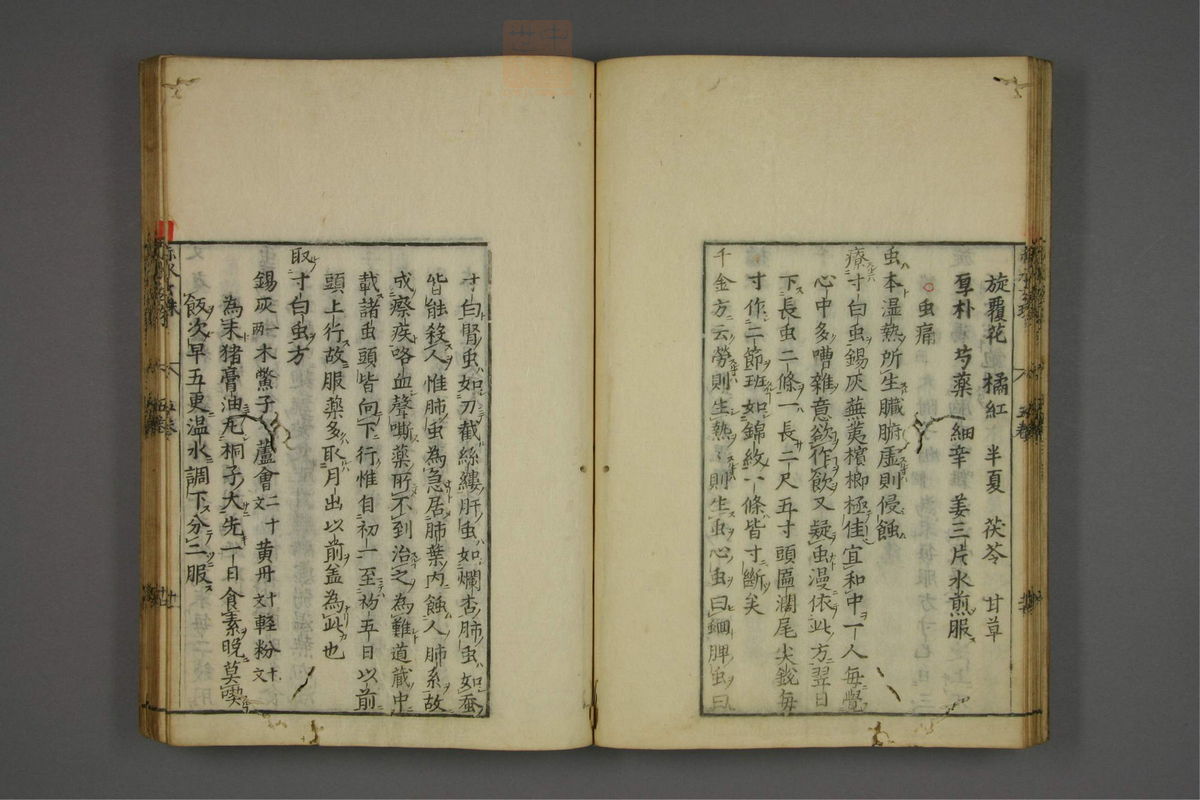 旋覆花 橘紅 半夏 茯苓 甘草
厚朴 芍藥 細辛 姜三片水煎服
虫痛
虫本湿熱所生臓腑虚則侵蝕
療寸白虫錫灰蕪荑檳榔極佳宜和中一人毎覺
心中多嘈雜意欲作飲又疑虫漫依此方翌日
下長虫二條一長二尺五寸頭區濶尾尖鋭毎
寸作二節班如錦紋八條皆寸断矣
千金方云勞則生熱熱則生虫心虫曰蛔脾虫曰
寸白腎虫如刀截絲縷肝虫如爛杏肺虫如蚕
皆能殺人惟肺虫為急居肺葉内蝕人肺系故
成瘵疾咯血聲嘶藥所不到治之為難道蔵中
載諸虫頭皆向下行惟自初一至初五日以前
頭上行故服藥多取月出以前盖為此也
取寸白虫方
錫灰一両木鱉子 蘆會二十文黄丹十文輕粉十文
為末猪膏油丸桐子大先一日食素晩莫喫
飯次早五更温水調下分二服